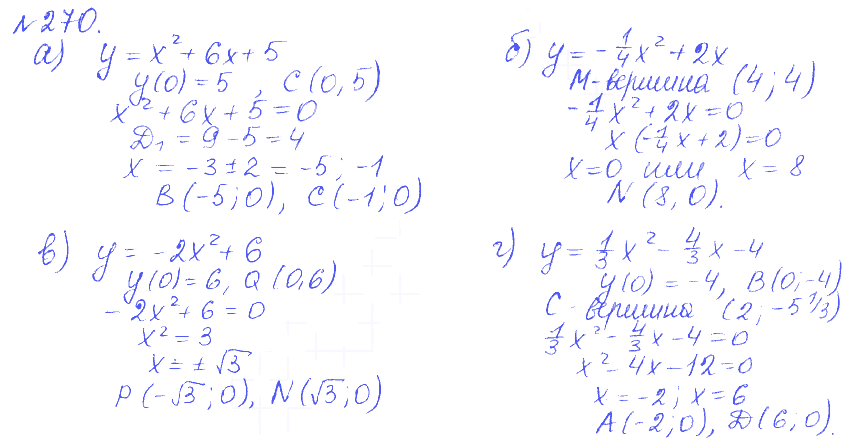 №270.
а) y = x² + 6x + 5
y(0) = 5 , C(0,5)
x² + 6x + 5 = 0
D₁ = 9 - 5 = 4
x = -3 ± 2 = -5; -1
B(-5;0), C(-1;0)
б) y = -1/4 x² + 2x
M-вершина (4;4)
-1/4 x² + 2x = 0
x(-1/4 x + 2) = 0
x = 0 или x = 8
N(8,0).
в) y = -2x² + 6
y(0) = 6, Q(0,6)
-2x² + 6 = 0
x² = 3
x = ± √3
P(-√3;0), N(√3;0)
г) y = 1/3 x² - 4/3 x - 4
y(0) = -4, B(0;-4)
C - вершина (2; -5 1/3)
1/3 x² - 4/3 x - 4 = 0
x² - 4x - 12 = 0
x = -2; x = 6
A(-2;0), D(6,0).